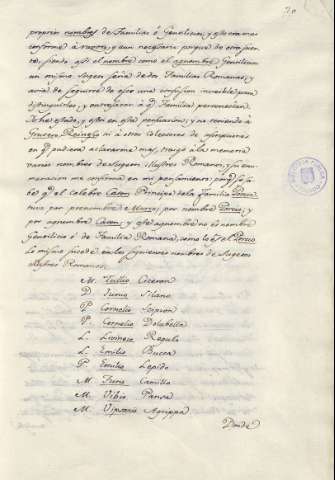 proprios nombres de Familias ó Genelicias, y esto era mas
conforme à razon, y aun necesario porque de otra suer-
te, siendo asi el nombre como el agnombre Gentilicios
un mismo Sugeto seria de dos Familias Romanas, y
avria de seguirse de esto una confusion increible para
distinguirlos, y
De he estado, y estoi en esta persuasion, y no teniendo à
Grutero, Reinesio ni à otros colectores de inscripciones
en q.e pudiera aclararme mas, traigo à la memoria
varios nombres de Sugetos Ilustres Romanos, y su enu-
meracion me confirma en mi pensamiento, porq.e se sa-
be q.e el celebre Caton Principe de la Familia Porcia
tuvo por prenombre de Marco, por nombre Porcio, y
por agnombre Caton, y este agnombre no es nombre
Gentilicio ó de Familia Romana, como lo es el Porcio
Lo mismo sucede en los siguientes nombres de Sugetos
Ilustres Romanos.
M. Tullio Ciceron
D. Junio Silano
P. Cornelio Scipion
P. Cornelio Dolabella
L. Livineio Regulo
L. Emilio Bucca
P. Emilio Lepido
M. Furio Camillo
M. Vibio Pansa
M. Vipsanio Agrippa
Donde